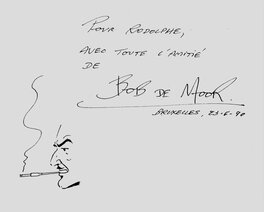 POUR RODOLPHE,
AVEC TOUTE L'AMITIÉ
DE
BOB DE MOOR.
BRUXELLES, 23-6-90